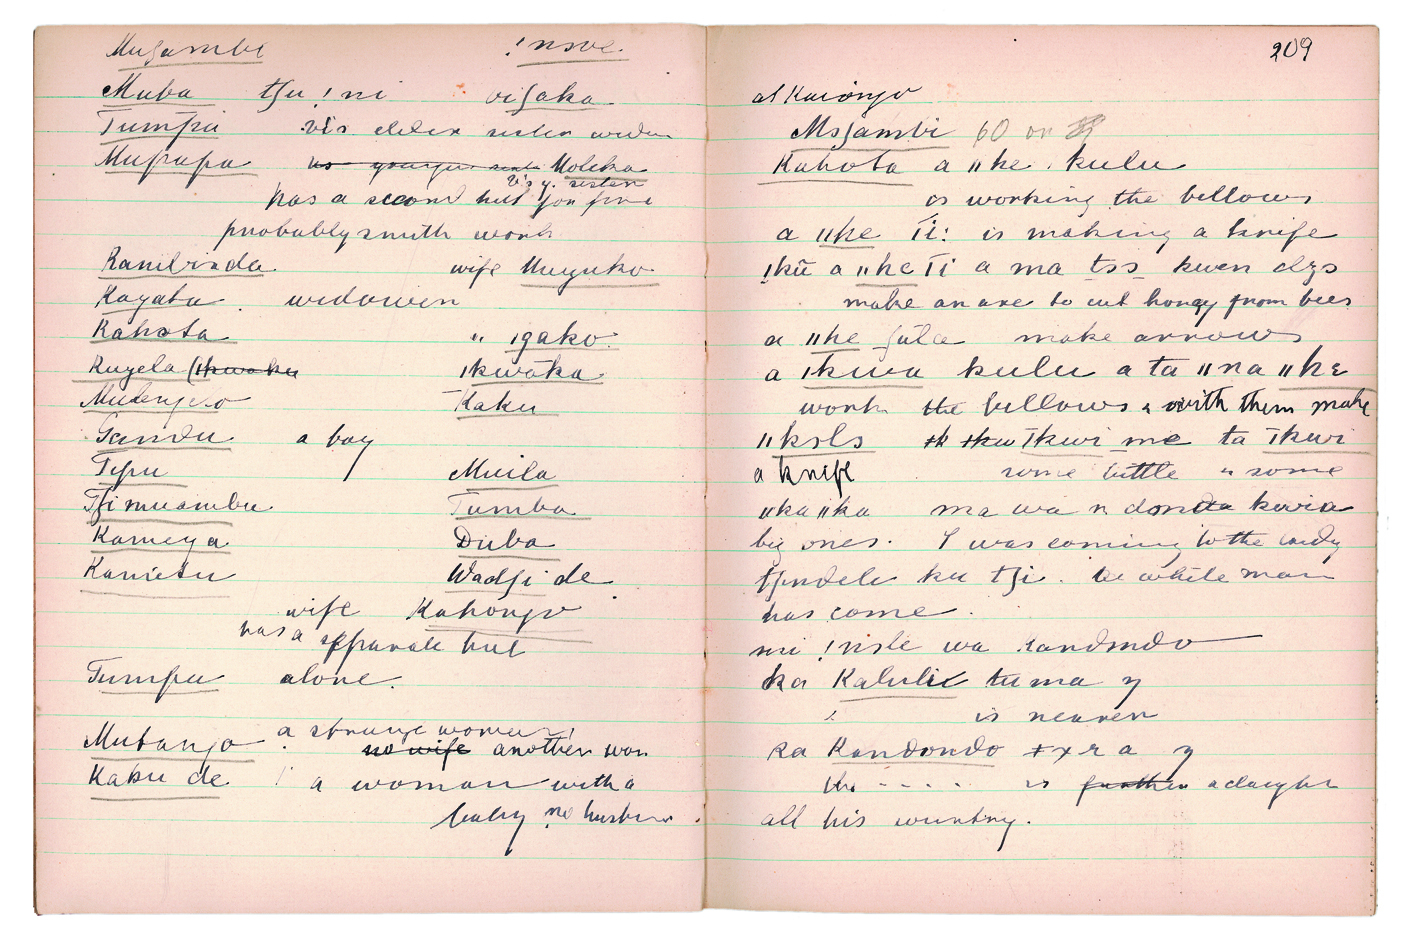 Muʃambi !nove.
Muba tʃu !ni viʃaka
Tumpa Vi's elder sister widow
Mupapa no younger sister Moleka
Vi's y. sister
has a second hut for fire
probably smith work
Kambinda wife Muyuko
Kayata widower
Kahota " ıgako.
Kuyela (ıkwoku ıkwoka
Mulengero Kaku
Gandu a boy
Typu Muila
Tʃimuambu Tumba
Kameya Duba
Kanietu Wadʃi de
wife Kahongo
has a separate hut
Tumpu alone.
a strange woman,
Mutango no wife another wom
Kaku de a woman with a
baby no husban
209
at Kuiongo
Msʃambi 60 or
Kahota a ıı ke kulu
is working the bellows
a ııke Ti: is making a knife
ıkū a ııke Ti a ma tss kwen dzs
make an axe to cut honey from bees
a ııke ʃula make arrows
a ıkwa kulu a ta ıı na ııke
work the bellows & with them make
ııksls ıkwi me ta ıkwi
a knife some little " some
ııka ııka ma wa n donda kwia
big ones. I was coming to the
tʃindele ku tʃi. the while man
has come.
mi !nsle wa kandondo
ka Kaluli tuma y
is nearer
ka Kandondo ıxra y
the - - - - is further a daughter
all his country.